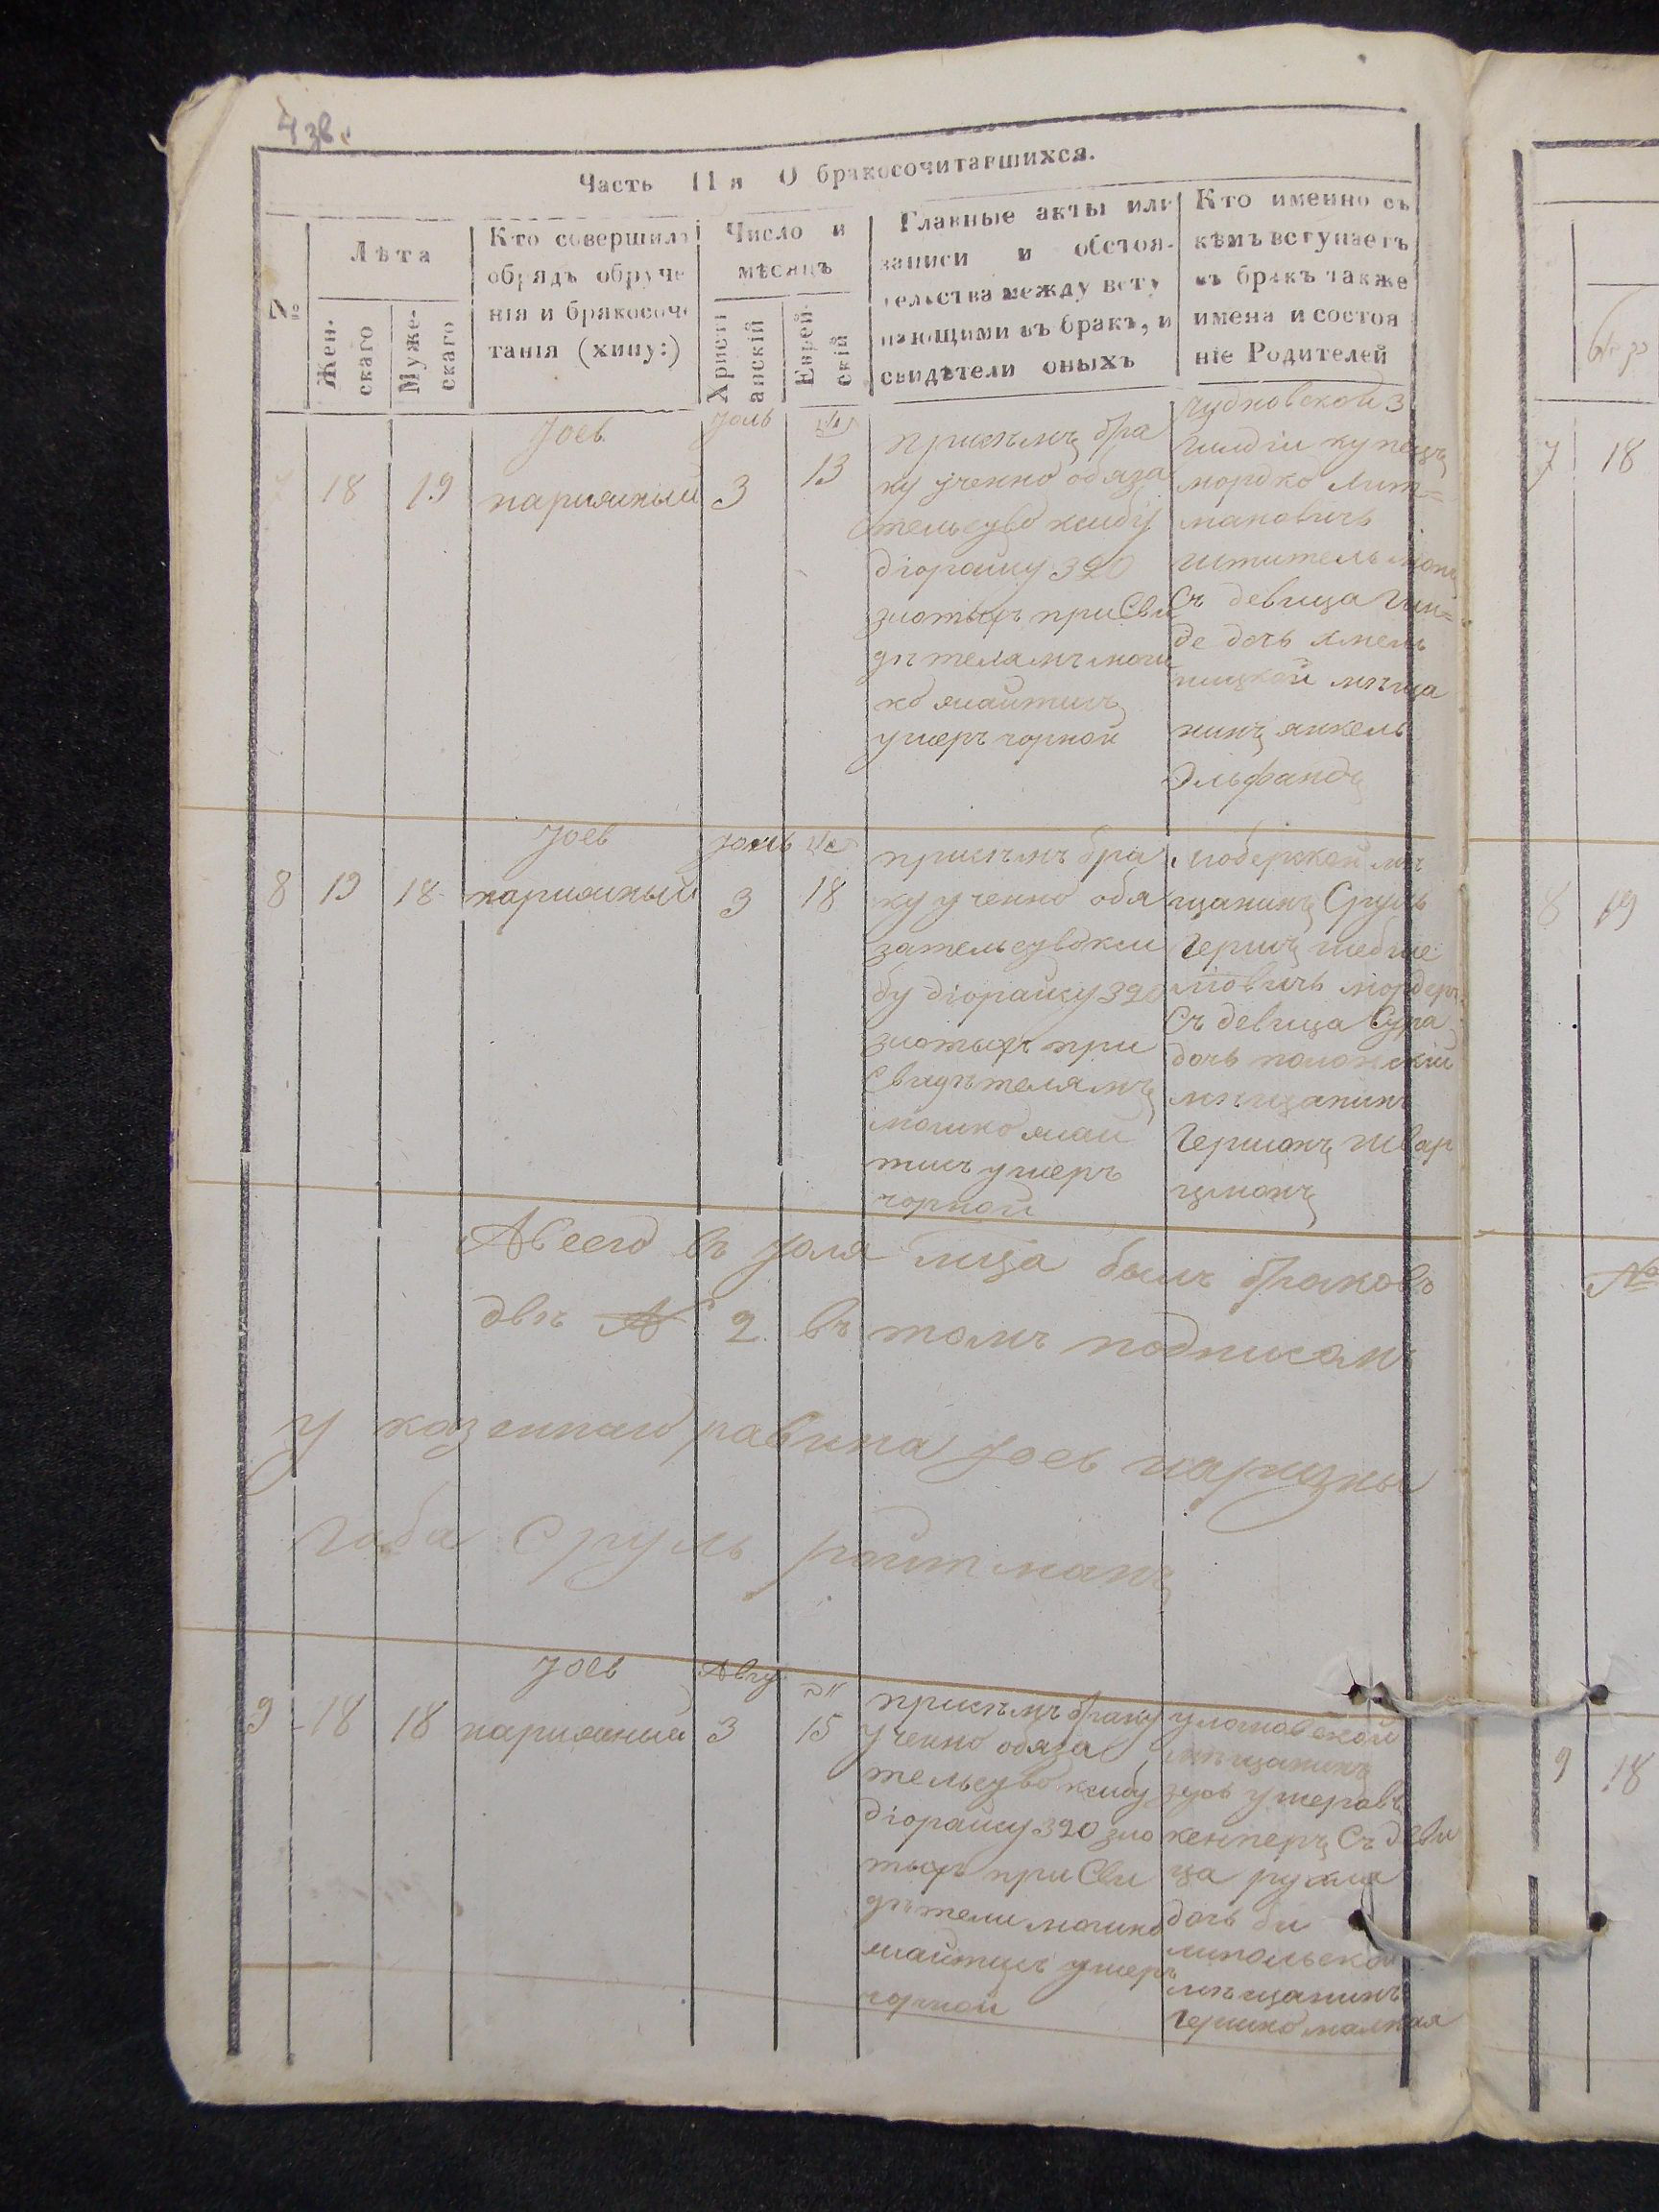 4 зв.
Часть 11я О бракосочитавшихся.
№
Лѣта
Жен-
скаго
Муже-
скаго
Кто совершилъ
обрядъ обруче
нія и бракосоче
танія (хипу:)
Число и
мѣсяцъ
Христі
анскій
Еврей-
скій
Главные акты или
записи и обстоя-
тельства между всту
пающими въ бракъ, и
свидѣтели оныхъ
Кто именно съ
кѣмъ вступаетъ
въ бракъ также
имена и состоя
ніе Родителей
7
18
19
Іоев
нарижный
Іоль
3
13
при семъ бра
ку учено обяза
тельсуво ксибу
діорайсу 320
злотыхъ при Сви
детелямъ мош
ко
ушеръ чорной
Чудновской 3
гилдіи купецъ
мордко Лит=
мановичъ
Съ девица Гин=
де дочь хмель
ницкой мѣща
нинъ янкель
Эльфандъ
8
19
18
Іоев
нарижный
Іоль
3
18
при семъ бра
ку учено обя
зательсуво кси
бу діорайсу 320
злотыхъ при
Свидетелямъ
мошко
ушеръ
чорной
любарской мѣ
щанинъ Сруль
Герцъ
Съ девица Сура
дочь полонскій
мѣщанинъ
Гершонъ швар
цманъ
А всего въ Іоля мца былъ браковъ
двѣ № 2 въ томъ подписалъ
У казеннаго равина Іоев нарижны
габа Сруль ройтманъ
9
18
18
Іоев
нарижный
Авгу
3
15
при семъ браку
учено обяза
тельсуво ксибу
діорайсу 320 зло
тыхъ при Сви
детели мошко
ушеръ
чорной
улановской
мѣщанинъ
зусь ушеровъ
кенперъ Съ деви
ца рухля
дочь би
липольской
мѣщанинъ
Гершко
7
18
8
19
№
9
18